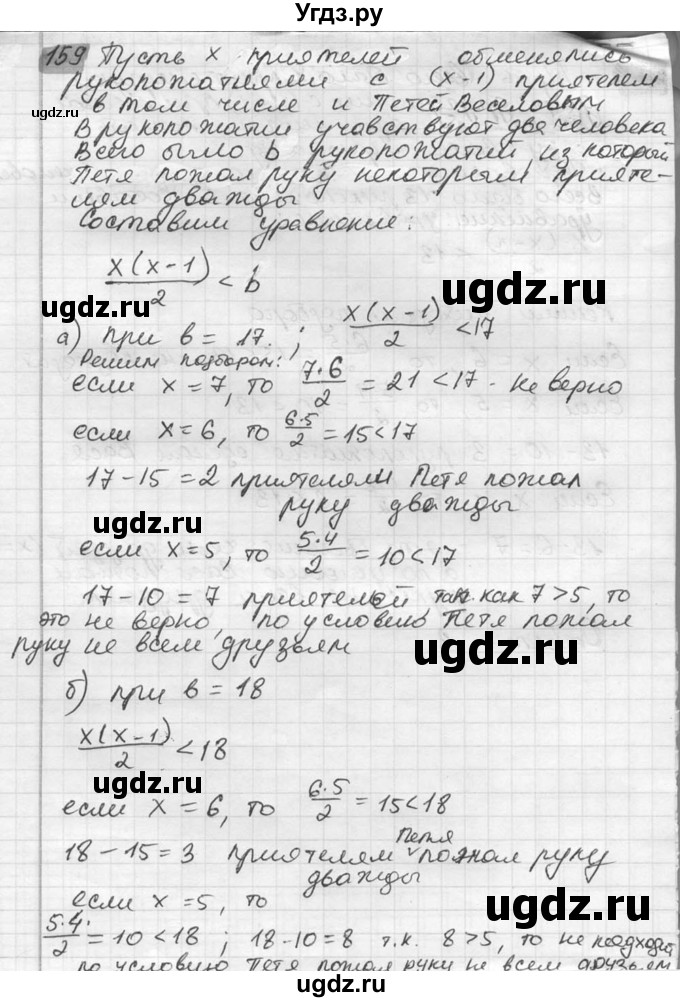 Угдз.ру
159 Пусть x приятелей обменялись
рукопожатиями с (x-1) приятелем
в том числе и Петей Веселовым
В рукопожатии учавствуют две человека
Всего было b рукопожатий, из который
Петя пожал руку некоторым прияте-
лям дважды
Составим уравнение:
x(x-1)/2 < b
ugdz.ru
ugdz.ru
а) при b = 17. ; x(x-1)/2 < 17
Решим подбором:
если x = 7, то 7·6/2 = 21 < 17 - не верно
если x = 6, то 6·5/2 = 15 < 17
ugdz.ru
17 - 15 = 2 приятелям Петя пожал
руку дважды
ugdz.ru
если x = 5, то 5·4/2 = 10 < 17
17 - 10 = 7 приятелей, так как 7 > 5, то
это не верно, по условию Петя пожал
руку не всем друзьям
ugdz.ru
б) при b = 18
x(x-1)/2 < 18
ugdz.ru
если x = 6, то 6·5/2 = 15 < 18
18 - 15 = 3 приятелям Петя пожал руку
дважды
если x = 5, то
ugdz.ru
5·4/2 = 10 < 18 ; 18 - 10 = 8 т.к. 8 > 5, то не подходит
по условию Петя пожал руки не всем друзьям
Угдз.ру